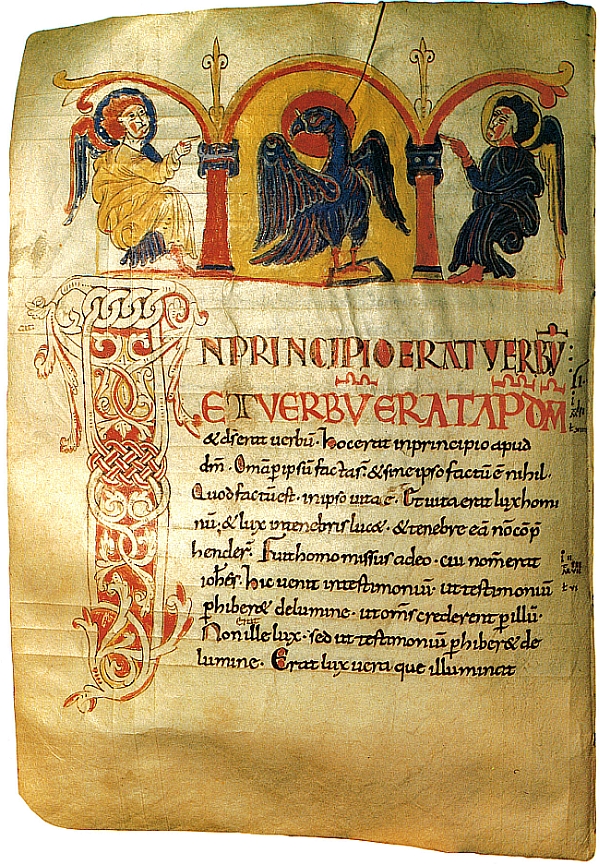 IN PRINCIPIO ERAT VERBV̄
ET VERBV ERAT AP̄ D̄M
& d̄s erat verbū· hoc erat in principio apud
dm̄· Om̄a p̄ ipsū facta s̄· & sine ipso factū ē nihil·
Quod factū est· in ipso vita ē· Et vita erat lux homi
nū· & lux in tenebris luc&· & tenebre eā nō cōp̄
hender̄· Fuit homo missus a deo· cui nom̄ erat
ioh̄es· Hic venit in testimoniū· ut testimoniū
p̄hiber& de lumine· ut om̄s crederent p̄ illū·
erat
Non ille lux· sed ut testimoniū p̄hiber& de
lumine· Erat lux vera que illuminat